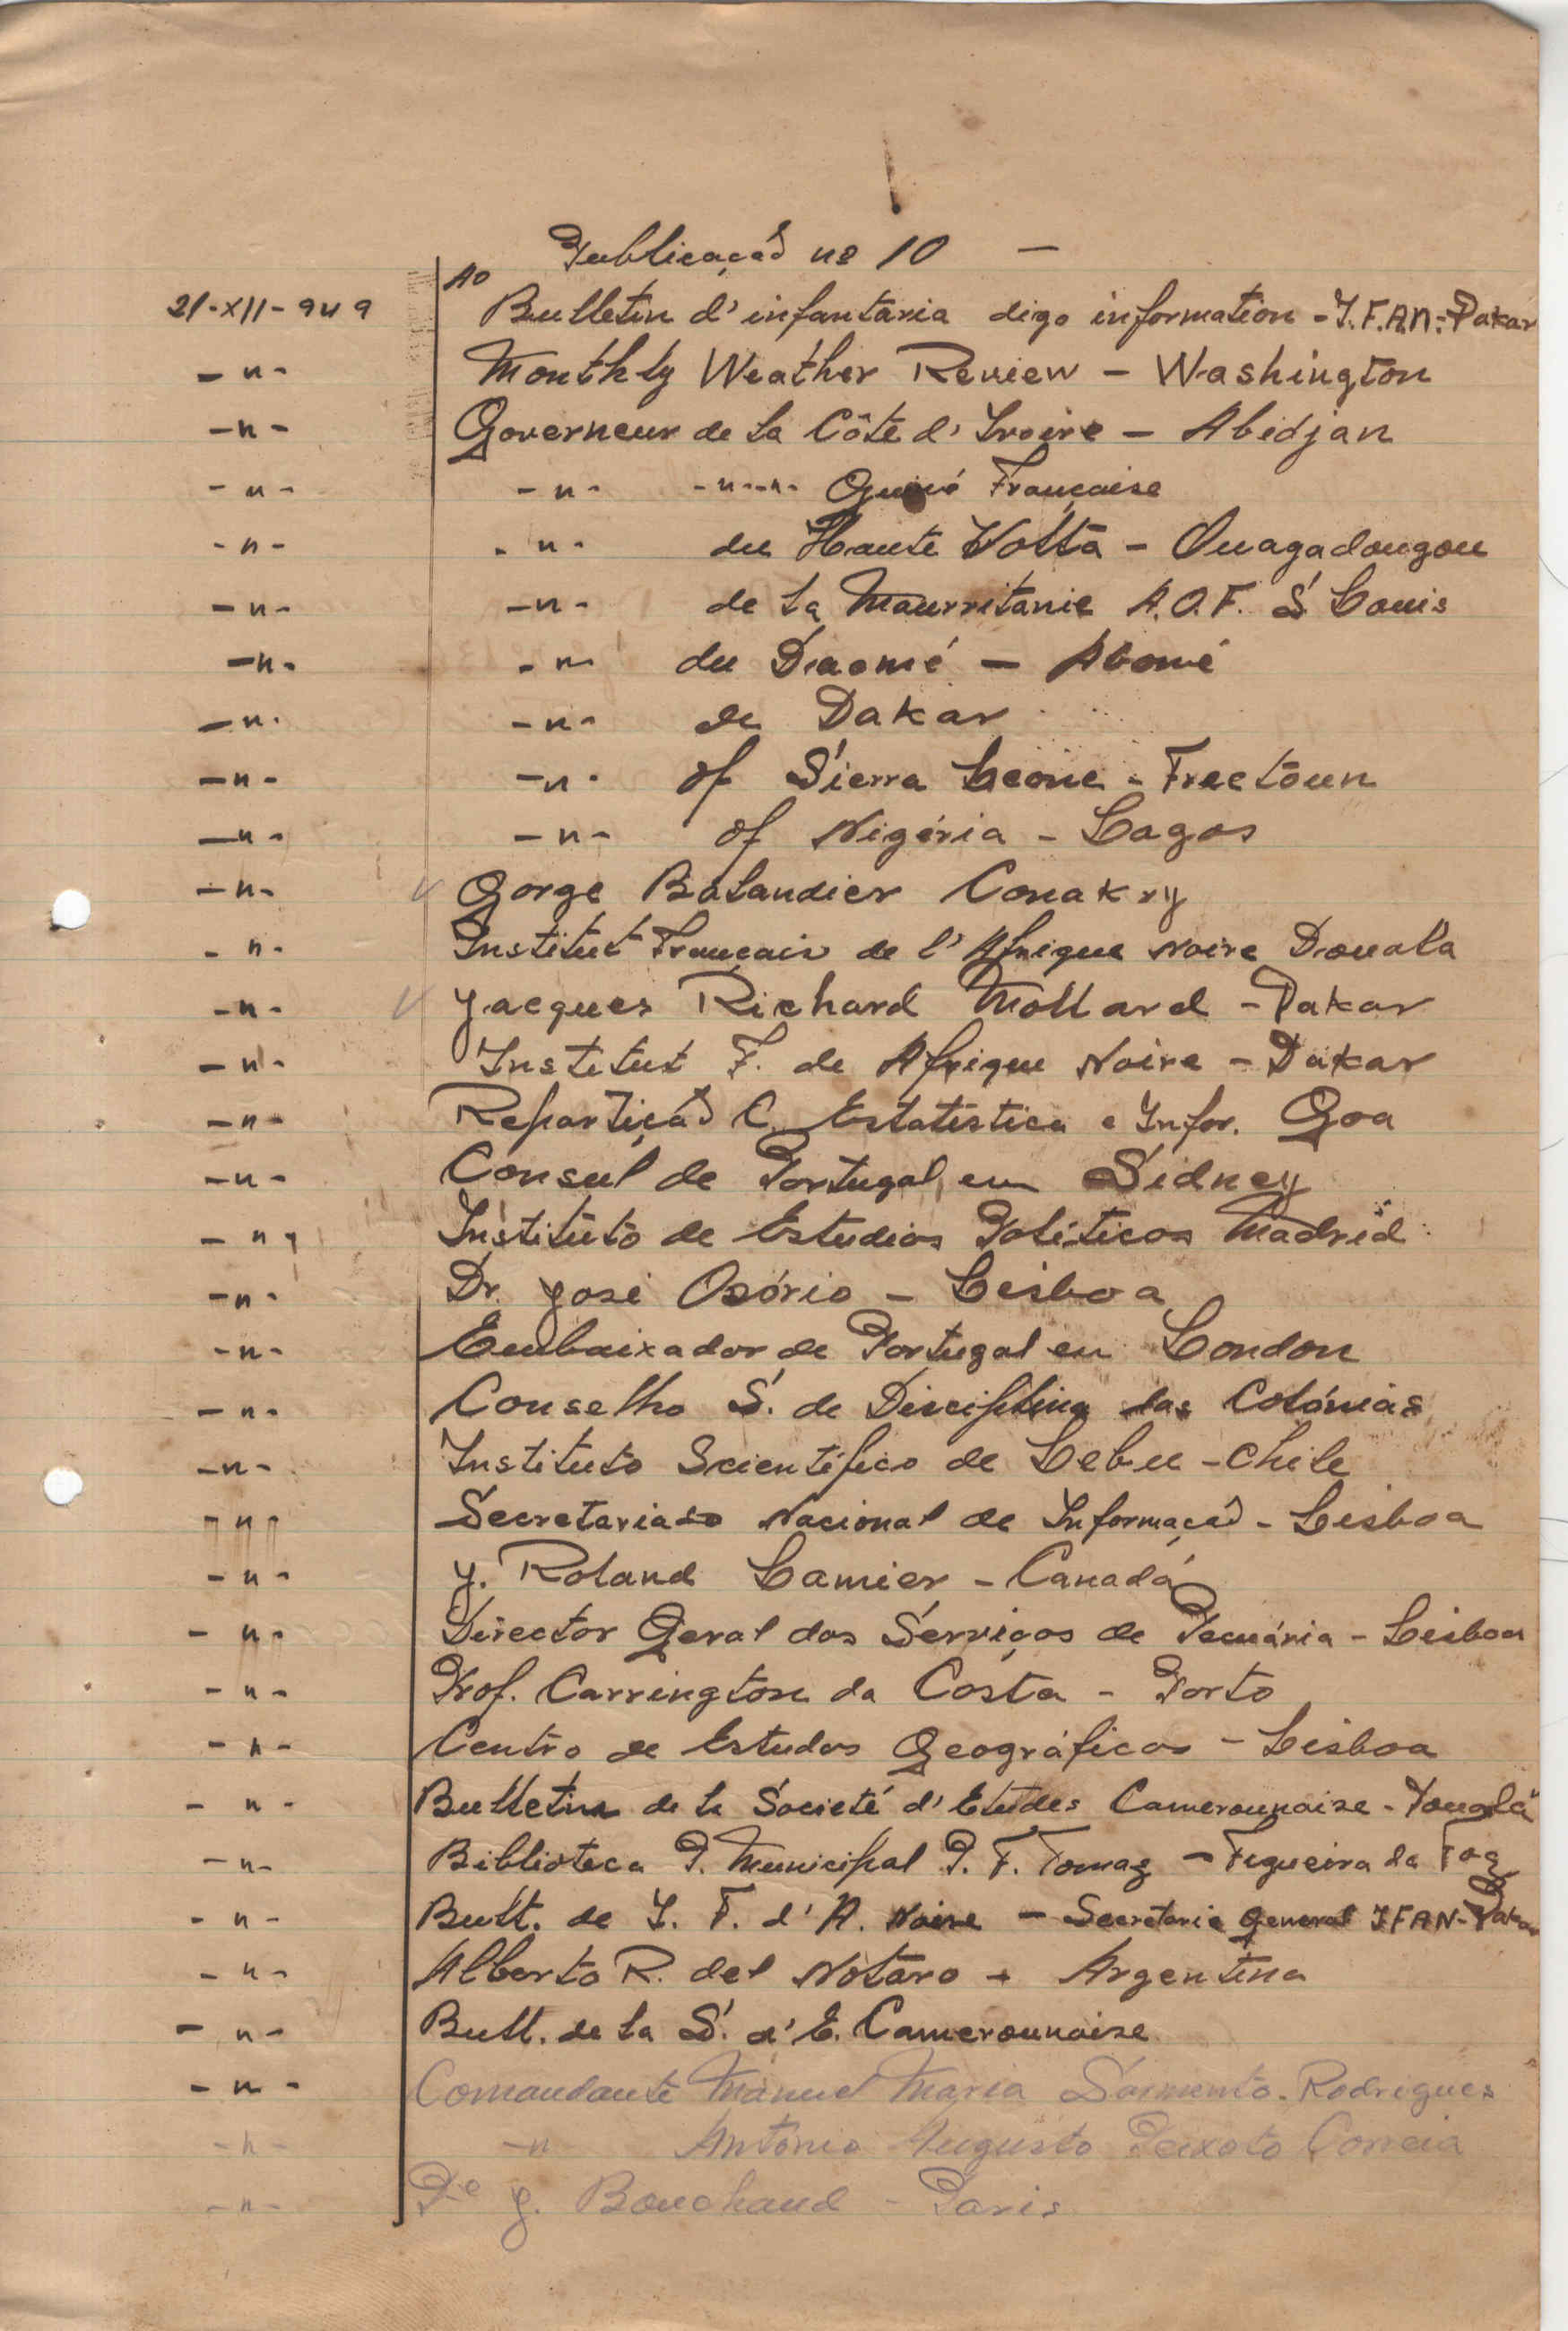 Publicação nº 10 —
Ao
21-XII-949 Bulletin d'infantaria digo information - I.F.A.N. - Dakar
-"- Monthly Weather Review - Washington
-"- Governeur de la Côte d'Ivoire - Abidjan
-"- -"- -"-"- Guiné Française
-"- -"- du Haute Volta - Ouagadougou
-"- -"- de la Maurritanie A.O.F. S Louis
-"- -"- du Daomé - Abomé
-"- -"- de Dakar
-"- -"- of Sierra Leone - Freetoun
-"- -"- of Nigéria - Lagos
-"- Gorge Balandier Conakry
-"- Institut Français de l'Afrique Noire Douala
-"- Jacques Richard Mollard - Dakar
-"- Institut F. de Afrique Noire - Dakar
-"- Repartição C. Estatistica e Infor. Goa
-"- Consul de Portugal em Sidney
-"- Instituto de Estudios Politicos Madrid
-"- Dr. José Osório - Lisboa
-"- Embaixador de Portugal em London
-"- Conselho S. de Disciplina das Colónias
-"- Instituto Scientifico de Lebu - Chile
-"- Secretariado Nacional de Informação - Lisboa
-"- J. Roland Lamier - Canadá
-"- Director Geral dos Serviços de Pecuária - Lisboa
-"- Prof. Carrington da Costa - Porto
-"- Centro de Estudos Geográficos - Lisboa
-"- Bulletin de la Societé d'Etudes Camerounaise -
-"- Biblioteca P. Municipal P. F. Tomaz - Figueira da Foz
-"- Bull. de I. F. d'A. Noire - Secretarie General IFAN - Dakar
-"- Alberto R. del Notaro - Argentina
-"- Bull. de la S. d'E. Camerounaise
-"- Comandante Manuel Maria Sarmento Rodrigues
-"- -"- António Augusto Peixoto Correia
-"- Pe J. Bouchaud - Paris